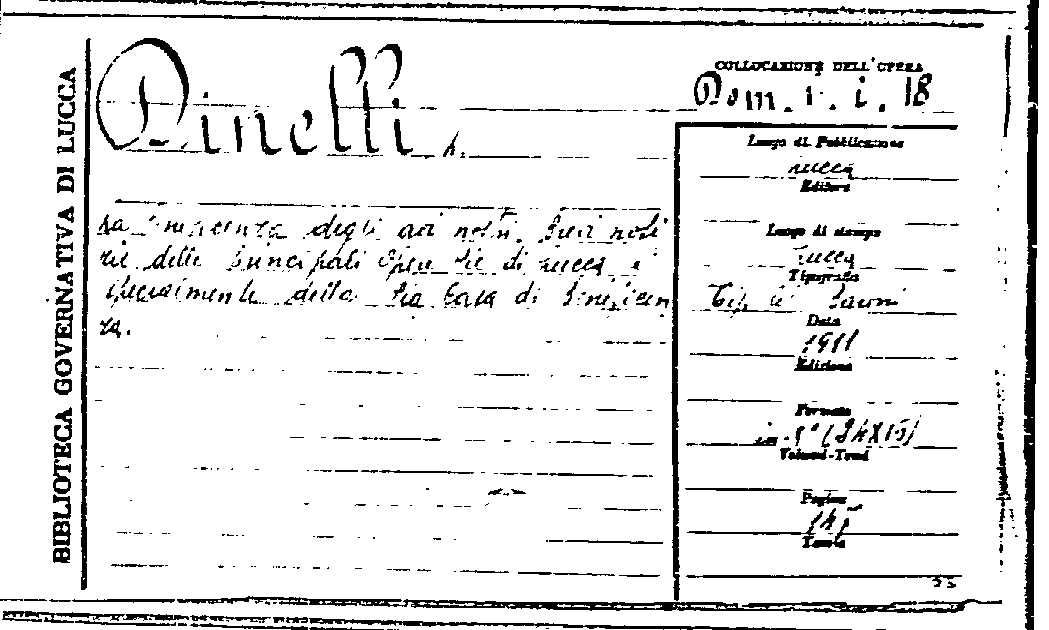 BIBLIOTECA GOVERNATIVA DI LUCCA
Dinelli A.
COLLOCAZIONE DELL'OPERA
Dom. 1. i. 18
La degli avi nostri. Brevi noti
zie delle principali Opere Pie di Lucca e
specialmente della Pia Casa di Beneficen
za.
Luogo di Pubblicazione
Lucca
Editore
Luogo di stampa
Lucca
Tipografia
Tip.
Data
1911
Edizione
Formato
in-8° (24X15)
Volumi-Tomi
Pagine
Tavole